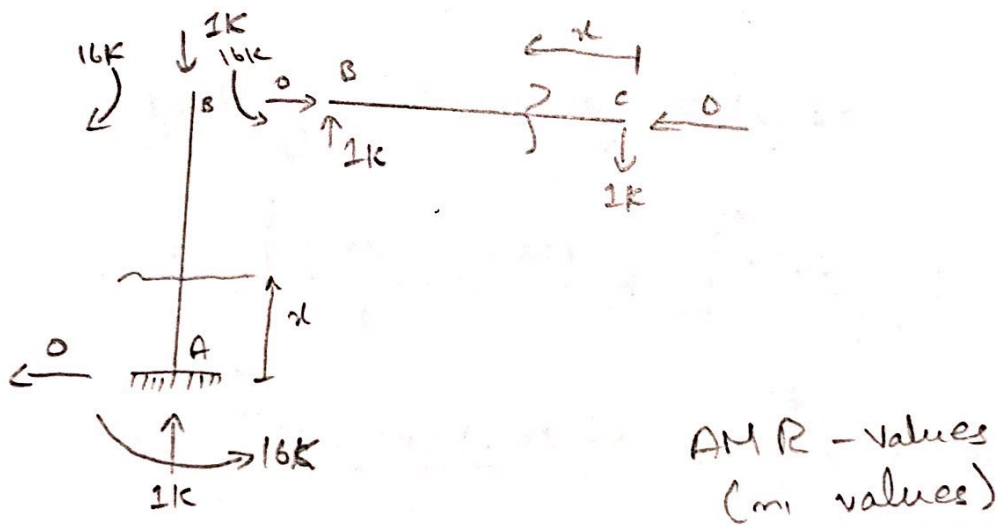 1K
16K
16K
B
0
B
x
C
0
1K
1K
x
0
A
16K
1K
AMR - values
(m, values)